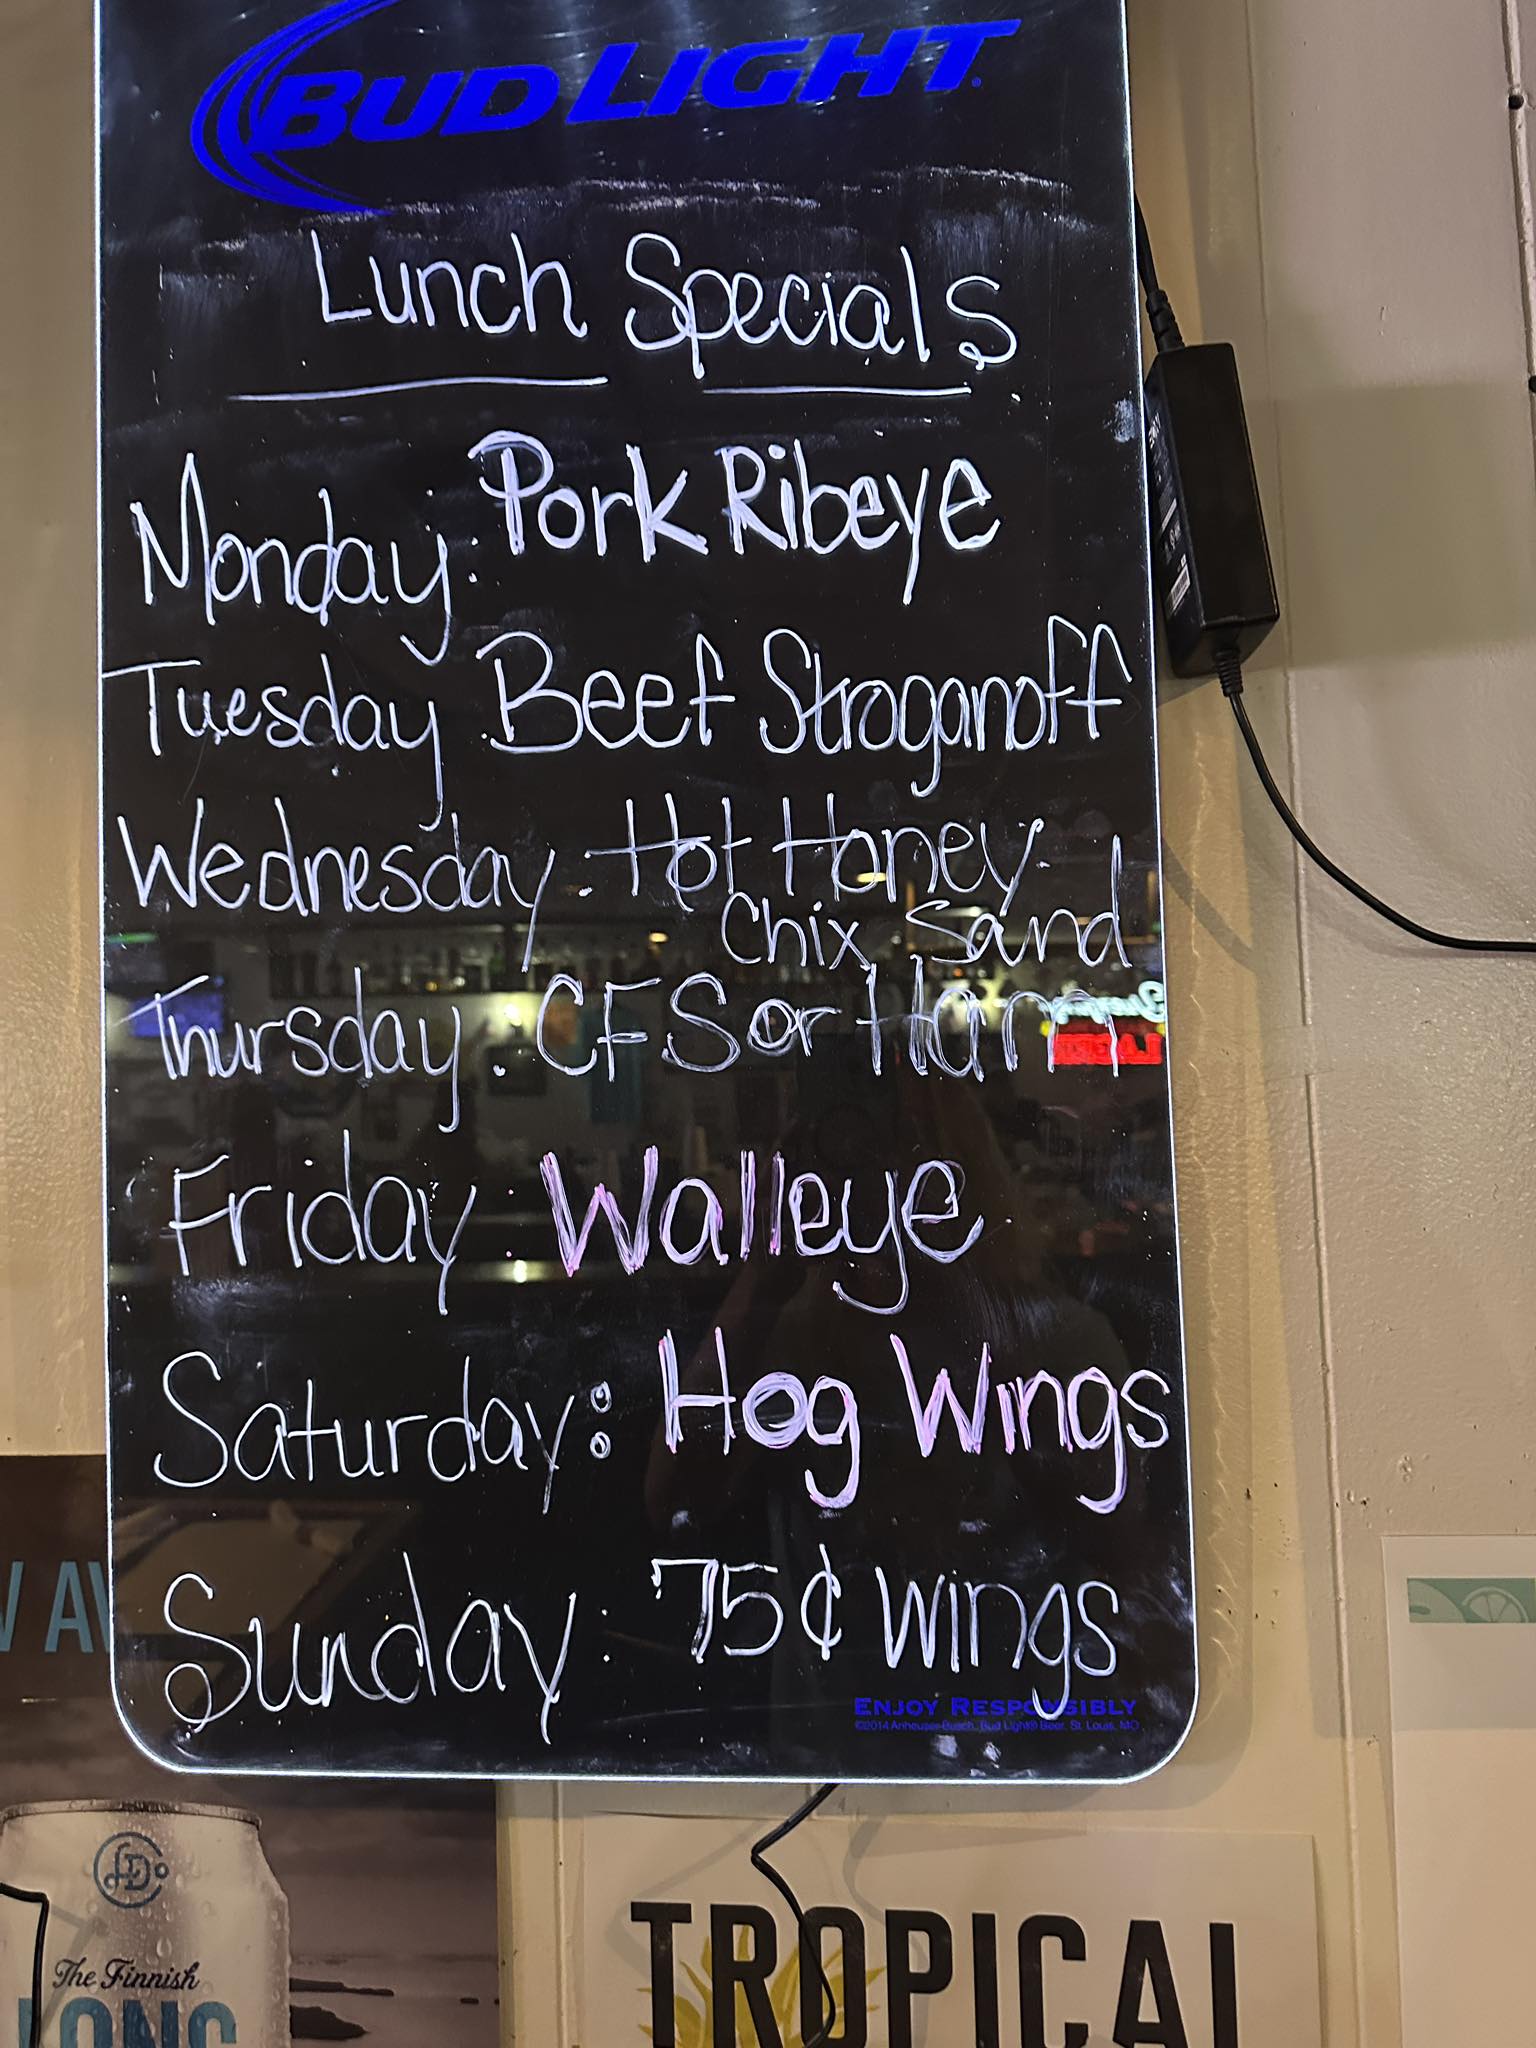 BUD LIGHT
Lunch Specials
Monday: Pork Ribeye
Tuesday: Beef Stroganoff
Wednesday: Hot Honey
Chix Sand
Thursday: CFS or Ham
Friday: Walleye
Saturday: Hog Wings
Sunday: 75¢ Wings
ENJOY RESPONSIBLY
©2014 Anheuser-Busch, Bud Light® Beer, St. Louis, MO
The Finnish
LONG
TROPICAL